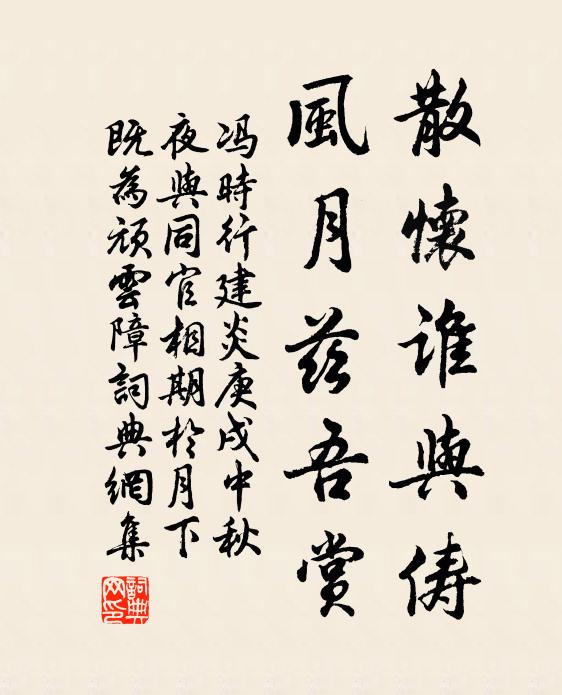 散懷誰與儔
風月茲吾賞
冯時行建炎庚戌中秋
夜與同官相期於月下
既為頑雲障詞典網集
詞典網印